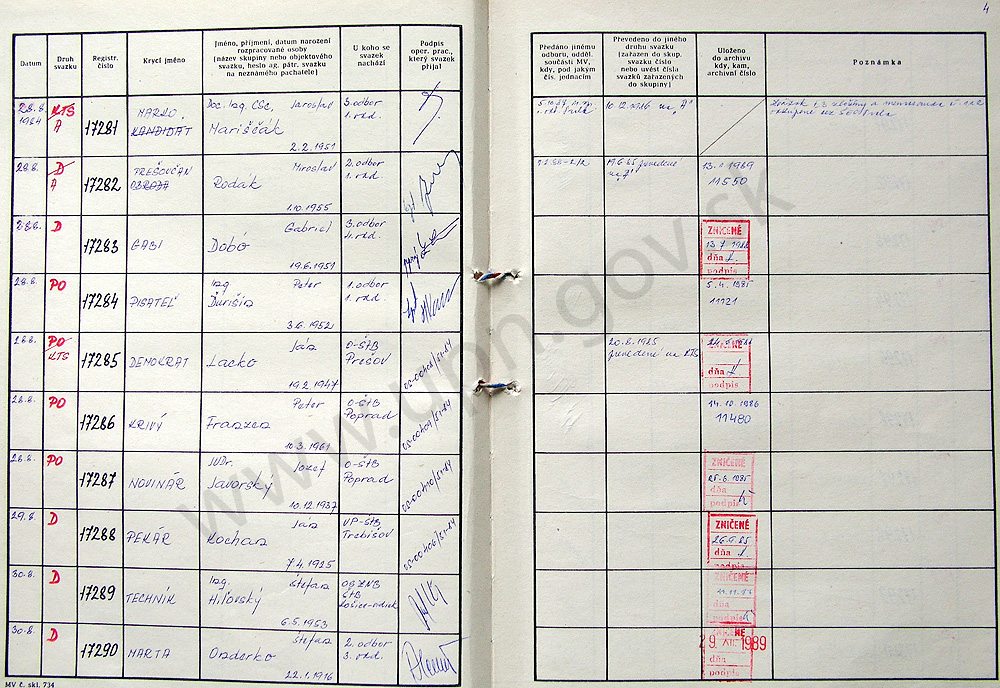 4
Datum
Druh svazku
Registr. číslo
Krycí jméno
Jméno, příjmení, datum narození
rozpracované osoby
(název skupiny nebo objektového
svazku, heslo ag. pátr. svazku
na neznámého pachatele)
U koho se
svazek
nachází
Podpis
oper. prac.,
který svazek
přijal
Předáno jinému
odboru, odděl.
součásti MV,
kdy, pod jakým
čís. jednacím
Převedeno do jiného
druhu svazku
(zařazen do skup.
svazku číslo
nebo uvést čísla
svazků zařazených
do skupiny)
Uloženo
do archivu
kdy, kam,
archivní číslo
Poznámka
28.8. 1984 KTS A 17281 MARKO KANDIDÁT Doc. Ing. CSc. Jaroslav Mariščák 2.2.1951 3. odbor 1. odd. 10.12.1986 na "A"
28.8. D A 17282 PREŠOVČAN Miroslav Rodák 1.10.1955 2. odbor 1. odd. 11550
28.8. D 17283 GABI Gabriel Dobó 19.6.1951 3. odbor 4. odd. ZNIČENÉ dňa podpis
28.8. PO 17284 PISATEĽ Ing. Peter Ďurišin 3.6.1952 1. odbor 1. odd. 5.4.1985 11121
28.8. PO KTS 17285 DEMOKRAT Ján Lacko 19.2.1947 O-ŠTB Prešov 20.8.1985 prevedené na KTS dňa podpis
28.8. PO 17286 KRIVÝ Peter Franzen 10.3.1961 O-ŠTB Poprad 14.10.1986 11480
28.8. PO 17287 NOVINÁR JUDr. Jozef Javorský 10.12.1937 O-ŠTB Poprad ZNIČENÉ dňa podpis
29.8. D 17288 PEKÁR Ján Kochan 7.4.1925 VP-ŠTB Trebišov ZNIČENÉ 26.9.85 dňa
30.8. D 17289 TECHNIK Ing. Štefan Hiľovský 6.5.1953 OS ZNB ŠTB ZNIČENÉ dňa podpis
30.8. D 17290 MARTA Štefan Onderko 22.1.1916 2. odbor 3. odd. ZNIČENÉ 29. VII. 1989 dňa podpis
MV č. skl. 734
www.upn.gov.sk